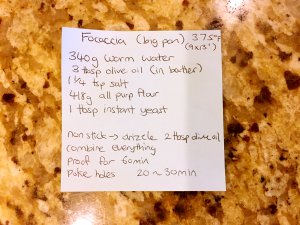 Focaccia (big pan) 375°F
(9x13")
340g warm water
3 tbsp olive oil (in batter)
1 1/4 tsp salt
418g all purp flour
1 tbsp instant yeast
non stick → drizzle 2 tbsp olive oil
combine everything
Proof for 60min
Poke holes 20~30min